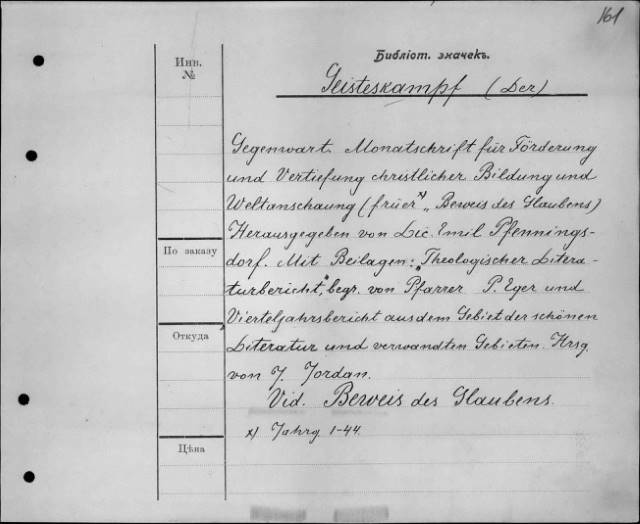 161
Библіот. значекъ.
Инв.
№
Geisteskampf (Der)
Gegenwart. Monatschrift für Förderung
und Vertiefung christlicher Bildung und
Weltanschaung (früer x) „Beweis des Glaubens)
Herausgegeben von Lic. Emil Pfennings-
dorf. Mit Beilagen: „Theologischer Litera-
turbericht", begr. von Pfarrer P. Eger und
Vierteljahrsbericht aus dem Gebiet der schönen
Literatur und verwandten Gebieten. Hrsg.
von J. Jordan.
Vid. Beweis des Glaubens.
x) Jahrg. 1-44.
По заказу
Откуда
Цѣна